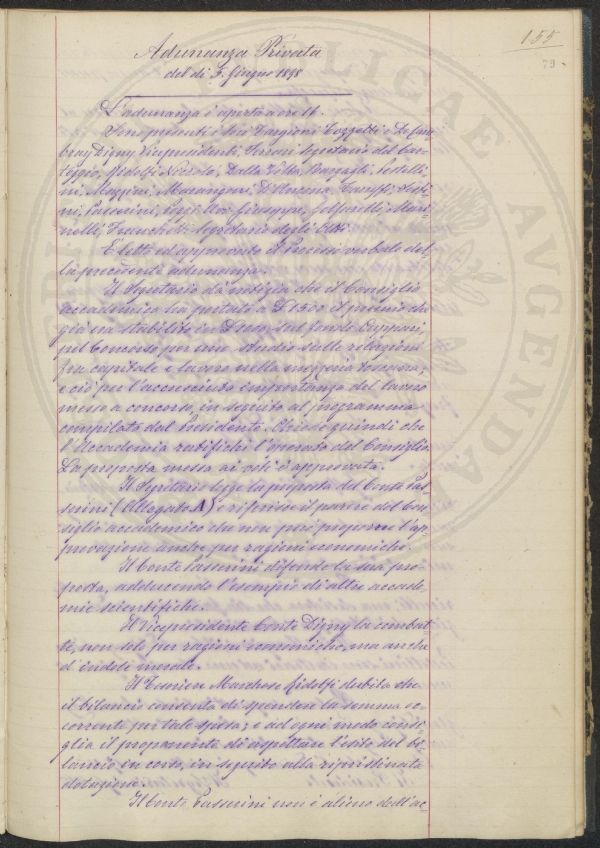 155
79
Adunanza Privata
del dì 5. Giugno 1898
L'adunanza è aperta a ore 11.
Sono presenti i Soci Targioni Tozzetti e De Cambray Digny Vicepresidenti, Ferrari Segretario del Car-
teggio, Ridolfi Niccolò, Della Volta, Bargagli, Pestelli-
ni, Mazzini, Marangoni, D'Ancona, Caruso,
ni, Passerini, Giuseppe, Mari-
nelli, Franchetti Segretario degli Atti.
È letto ed approvato il Processo verbale del-
la precedente adunanza.
Il Segretario dà notizia che il Consiglio
accademico ha portato a L. 1500 il premio da
già una stabilito in L. 1000, sul fondo Cuppari,
pel Concorso per uno studio sulle relazioni
fra capitale e lavoro nella mezzeria toscana;
e ciò per l'accresciuta importanza del lavoro
messo a concorso, in seguito al programma
compilato dal Presidente. Chiede quindi che
l'Accademia ratifichi l'operato del Consiglio.
La proposta messa ai voti è approvata.
Il Segretario legge la proposta del Conte Pas-
serini (Allegato A) e riferisce il parere del Con-
siglio accademico che non può proporre l'ap-
provazione anche per ragioni economiche.
Il Conte Passerini difende la sua pro-
posta, adducendo l'esempio di altre accade-
mie scientifiche.
Il Vicepresidente Conte Digny la combat-
te, non solo per ragioni economiche, ma anche
d'indole morale.
Il Tesoriere Marchese Ridolfi dubita che
il bilancio consenta di spendere la somma oc-
corrente per tale spesa; e ad ogni modo consi-
glia il proponente di aspettare l'esito del bi-
lancio in corso, in seguito alla ripristinata
dotazione.
Il Conte Passerini non è alieno dall'ac-